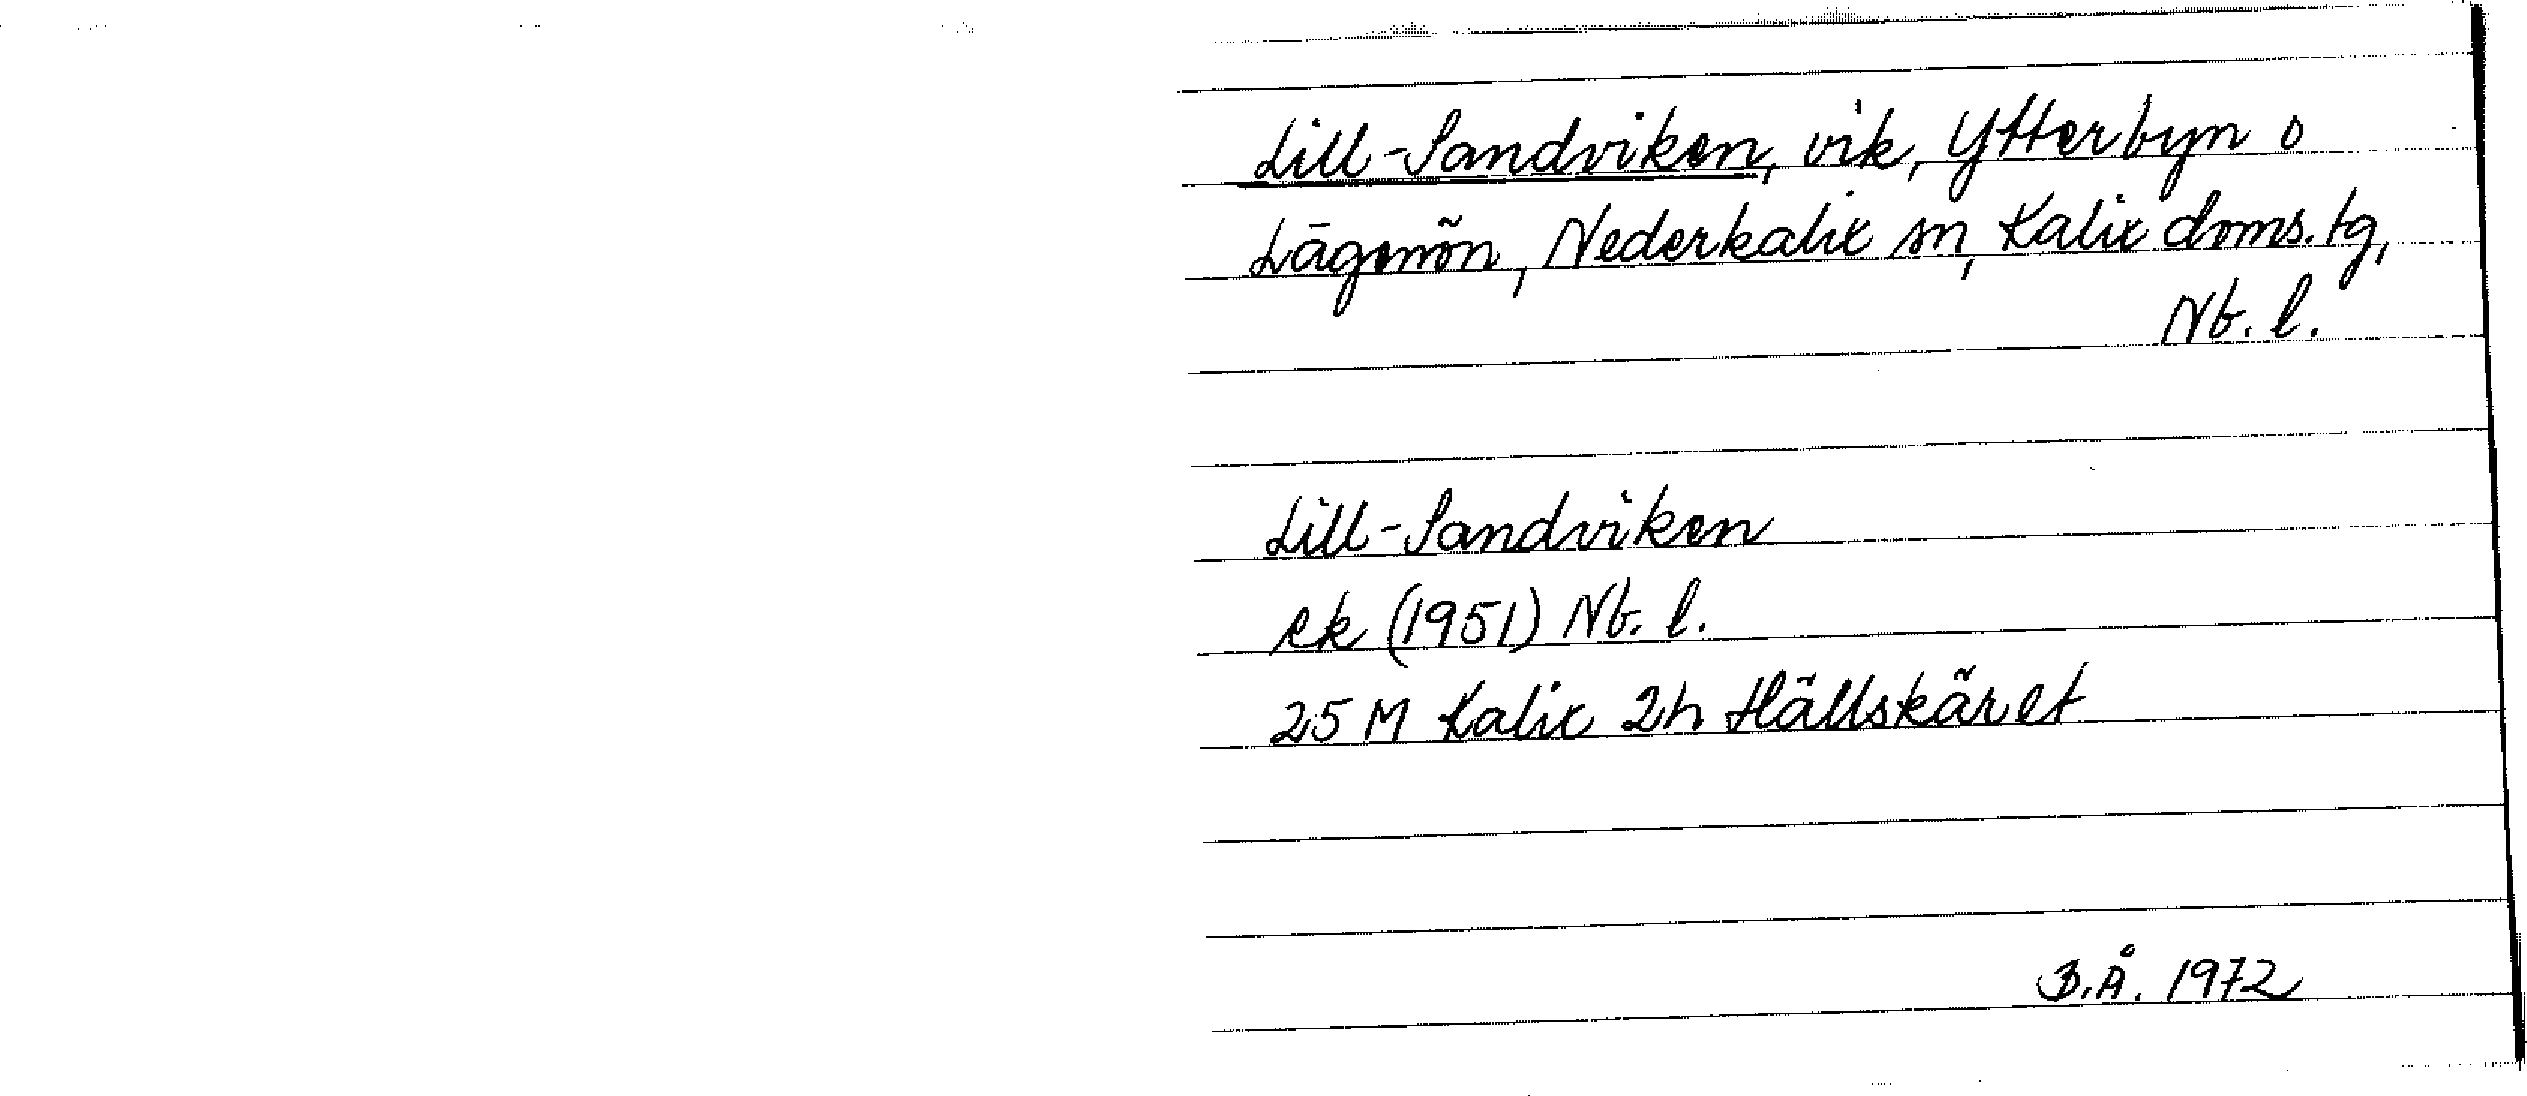 Lill-Sandviken, vik, Ytterbyn o
Lägenön, Nederkalix sn, Kalix doms. tg,
Nb. l.
Lill-Sandviken
ek (1951) Nb. l.
25 M Kalix 2h Hällskäret
B.Å. 1972